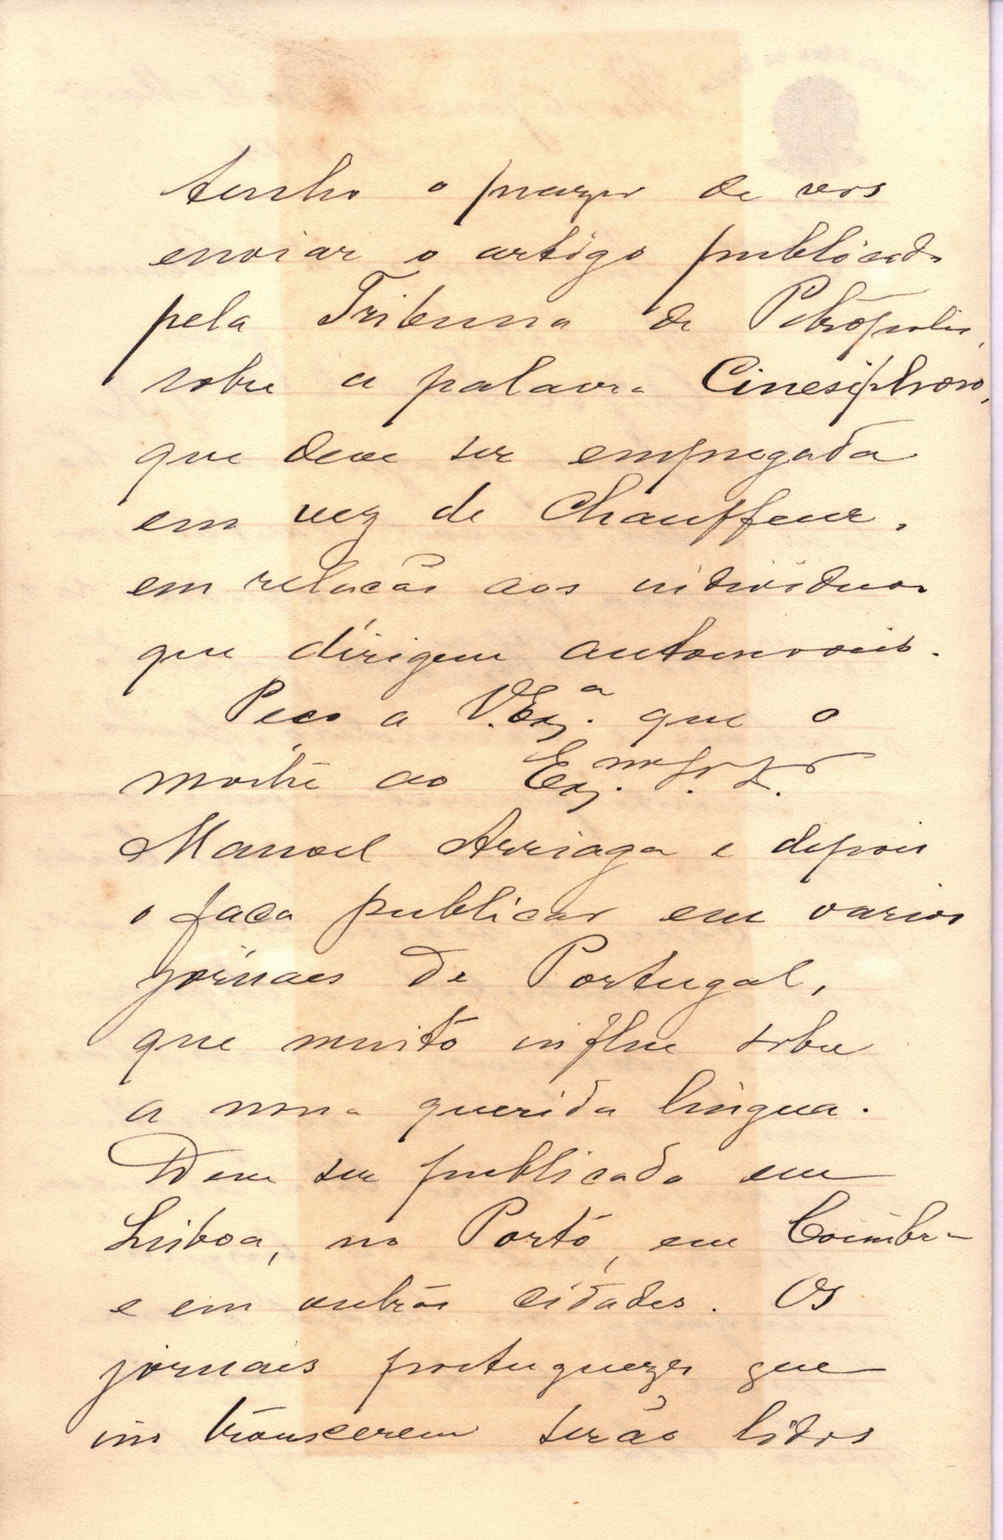 tenho o prazer de vos
enviar o artigo publicado
pela Tribuna de Petrópolis,
sobre a palavra Cinesiphoro,
que deve ser empregada
em vez de Chauffeur,
em relacão aos individuos
que dirigem automoveis.
Peco a V. Exª. que o
mostre ao Exmo. Sr. Dr.
Manoel Arriaga e depois
o faca publicar em varios
jornaes de Portugal,
que muito influe sobre
a nossa querida lingua.
Deve ser publicado em
Lisboa, no Porto, em Coimbra
e em outras cidades. Os
jornais portuguezes que
transcerem serão lidos